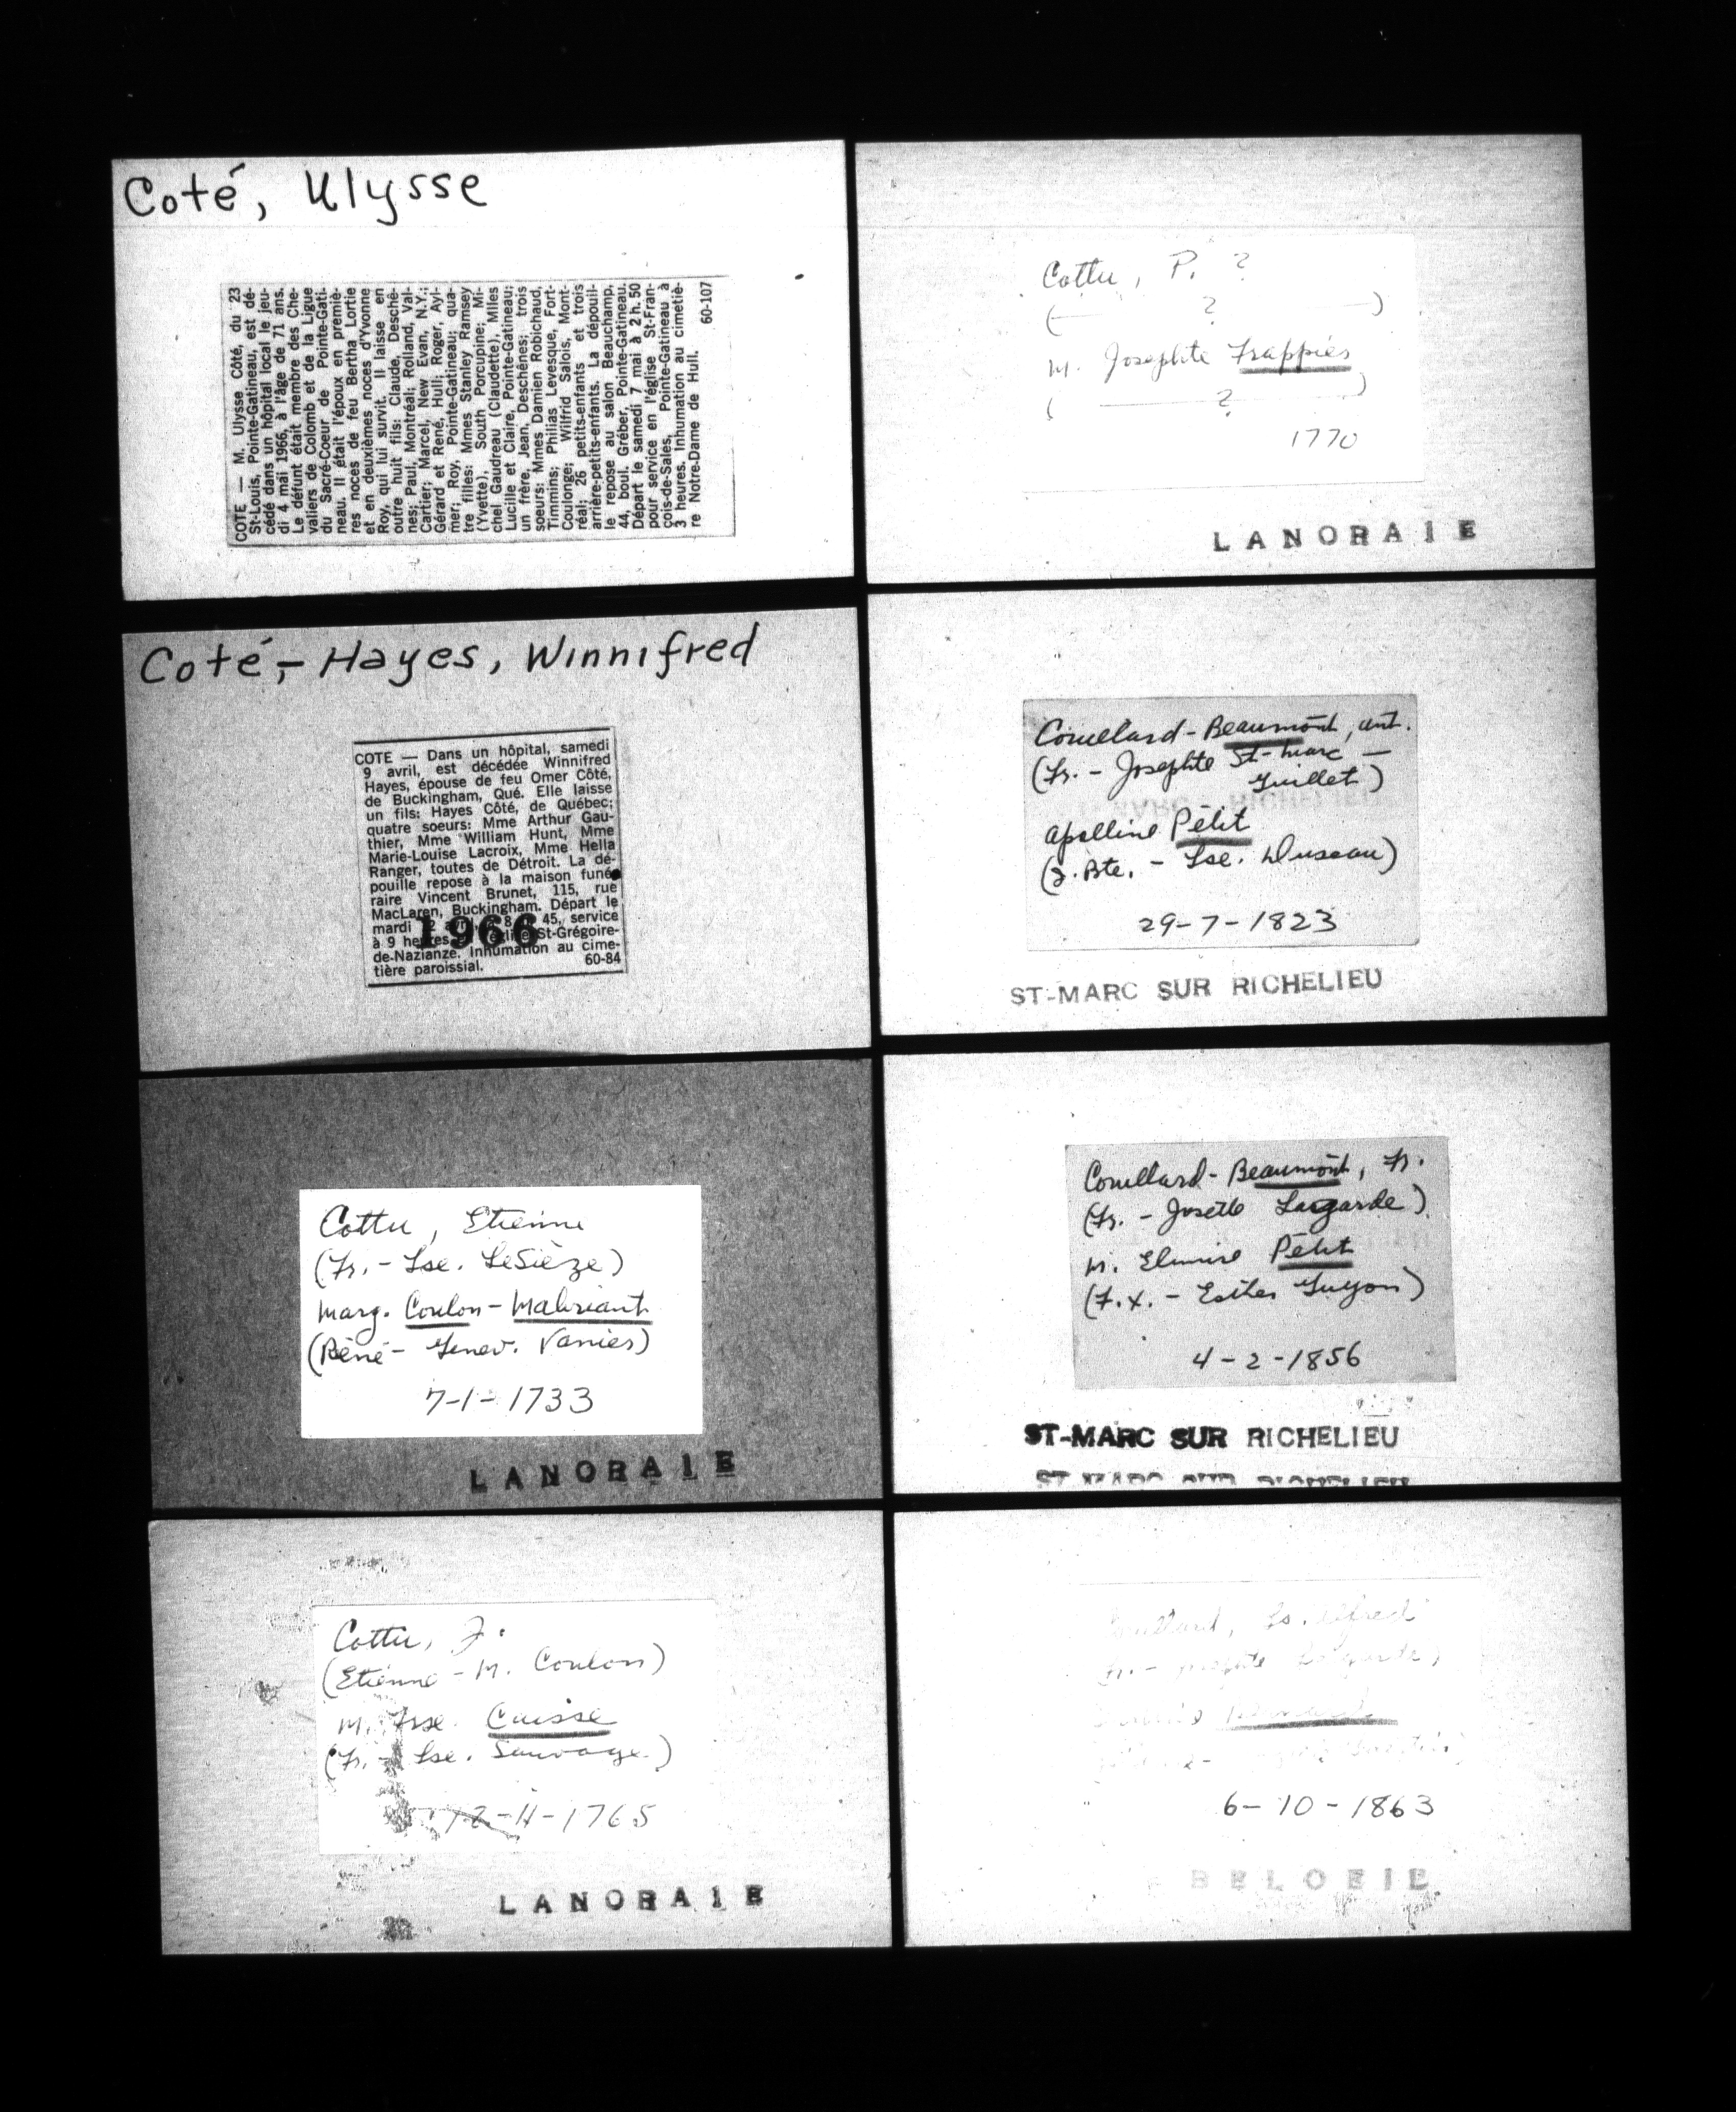 Coté, Ulysse
COTE — M. Ulysse Côté, du 23
St-Louis, Pointe-Gatineau, est dé-
cédé dans un hôpital local le jeu-
di 4 mai 1966, à l'âge de 71 ans.
Le défunt était membre des Che-
valiers de Colomb et de la Ligue
du Sacré-Coeur de Pointe-Gati-
neau. Il était l'époux en premiè-
res noces de feu Bertha Lortie
et en deuxièmes noces d'Yvonne
Roy, qui lui survit. Il laisse en
outre huit fils: Claude, Deschê-
nes; Paul, Montréal; Rolland, Val-
Cartier; Marcel, New Evan, N.Y.;
Gérard et René, Hull; Roger, Ayl-
mer; Roy, Pointe-Gatineau; qua-
tre filles: Mmes Stanley Ramsey
(Yvette), South Porcupine; Mi-
chel Gaudreau (Claudette), Mlles
Lucille et Claire, Pointe-Gatineau;
un frère, Jean, Deschênes; trois
soeurs: Mmes Damien Robichaud,
Timmins; Philias Levesque, Fort-
Coulonge; Wilfrid Salois, Mont-
réal; 26 petits-enfants et trois
arrière-petits-enfants. La dépouil-
le repose au salon Beauchamp,
44, boul. Gréber, Pointe-Gatineau.
Départ le samedi 7 mai à 2 h. 50
pour service en l'église St-Fran-
çois-de-Sales, Pointe-Gatineau à
3 heures. Inhumation au cimetiè-
re Notre-Dame de Hull.
60-107
Coté,- Hayes, Winnifred
COTE — Dans un hôpital, samedi
9 avril, est décédée Winnifred
Hayes, épouse de feu Omer Côté,
de Buckingham, Qué. Elle laisse
un fils: Hayes Côté, de Québec;
quatre soeurs: Mme Arthur Gau-
thier, Mme William Hunt, Mme
Marie-Louise Lacroix, Mme Hella
Ranger, toutes de Détroit. La dé-
pouille repose à la maison funé-
raire Vincent Brunet, 115, rue
MacLaren, Buckingham. Départ le
mardi 45, service
1966
à 9 heures St-Grégoire-
de-Nazianze. Inhumation au cime-
tière paroissial. 60-84
Cottu, Etienne
(Fr. - Lse. LeSièze)
Marg. Coulon - Mabriant
(Réné - Genev. Vanier)
7-1-1733
LANORAIE
Cottu, J.
(Etienne - M. Coulon)
M. Frse. Caisse
(Fr. - Lse. Sauvage.)
-11-1765
LANORAIE
Cottu, P. ?
( ? )
M. Josephte Frappier
( ? )
1770
LANORAIE
Couillard - Beaumont, Ant.
(Fr. - Josephte St-Marc -
Guillet)
Apolline Petit
(J. Bte. - Lse. Duseau)
29-7-1823
ST-MARC SUR RICHELIEU
Couillard - Beaumont, Fr.
(Fr. - Josette Lagarde)
M. Elmire Petit
(F.X. - Esther Guyon)
4-2-1856
ST-MARC SUR RICHELIEU
ST-MARC SUR RICHELIEU
Ls. Alfred
6-10-1863
BELOEIL